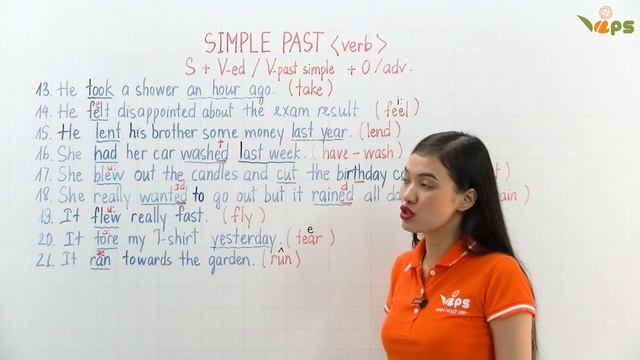 VEPS
SIMPLE PAST <verb>
S + V-ed / V-past simple + O / adv.
13. He took a shower an hour ago. (take)
14. He felt disappointed about the exam result (feel)
15. He lent his brother some money last year. (lend)
16. She had her car washed last week. (have - wash)
17. She blew out the candles and cut the birthday
18. She really wanted to go out but it rained all
19. It flew really fast. (fly)
20. It tore my T-shirt yesterday. (tear)
21. It ran towards the garden. (run)
VEPS